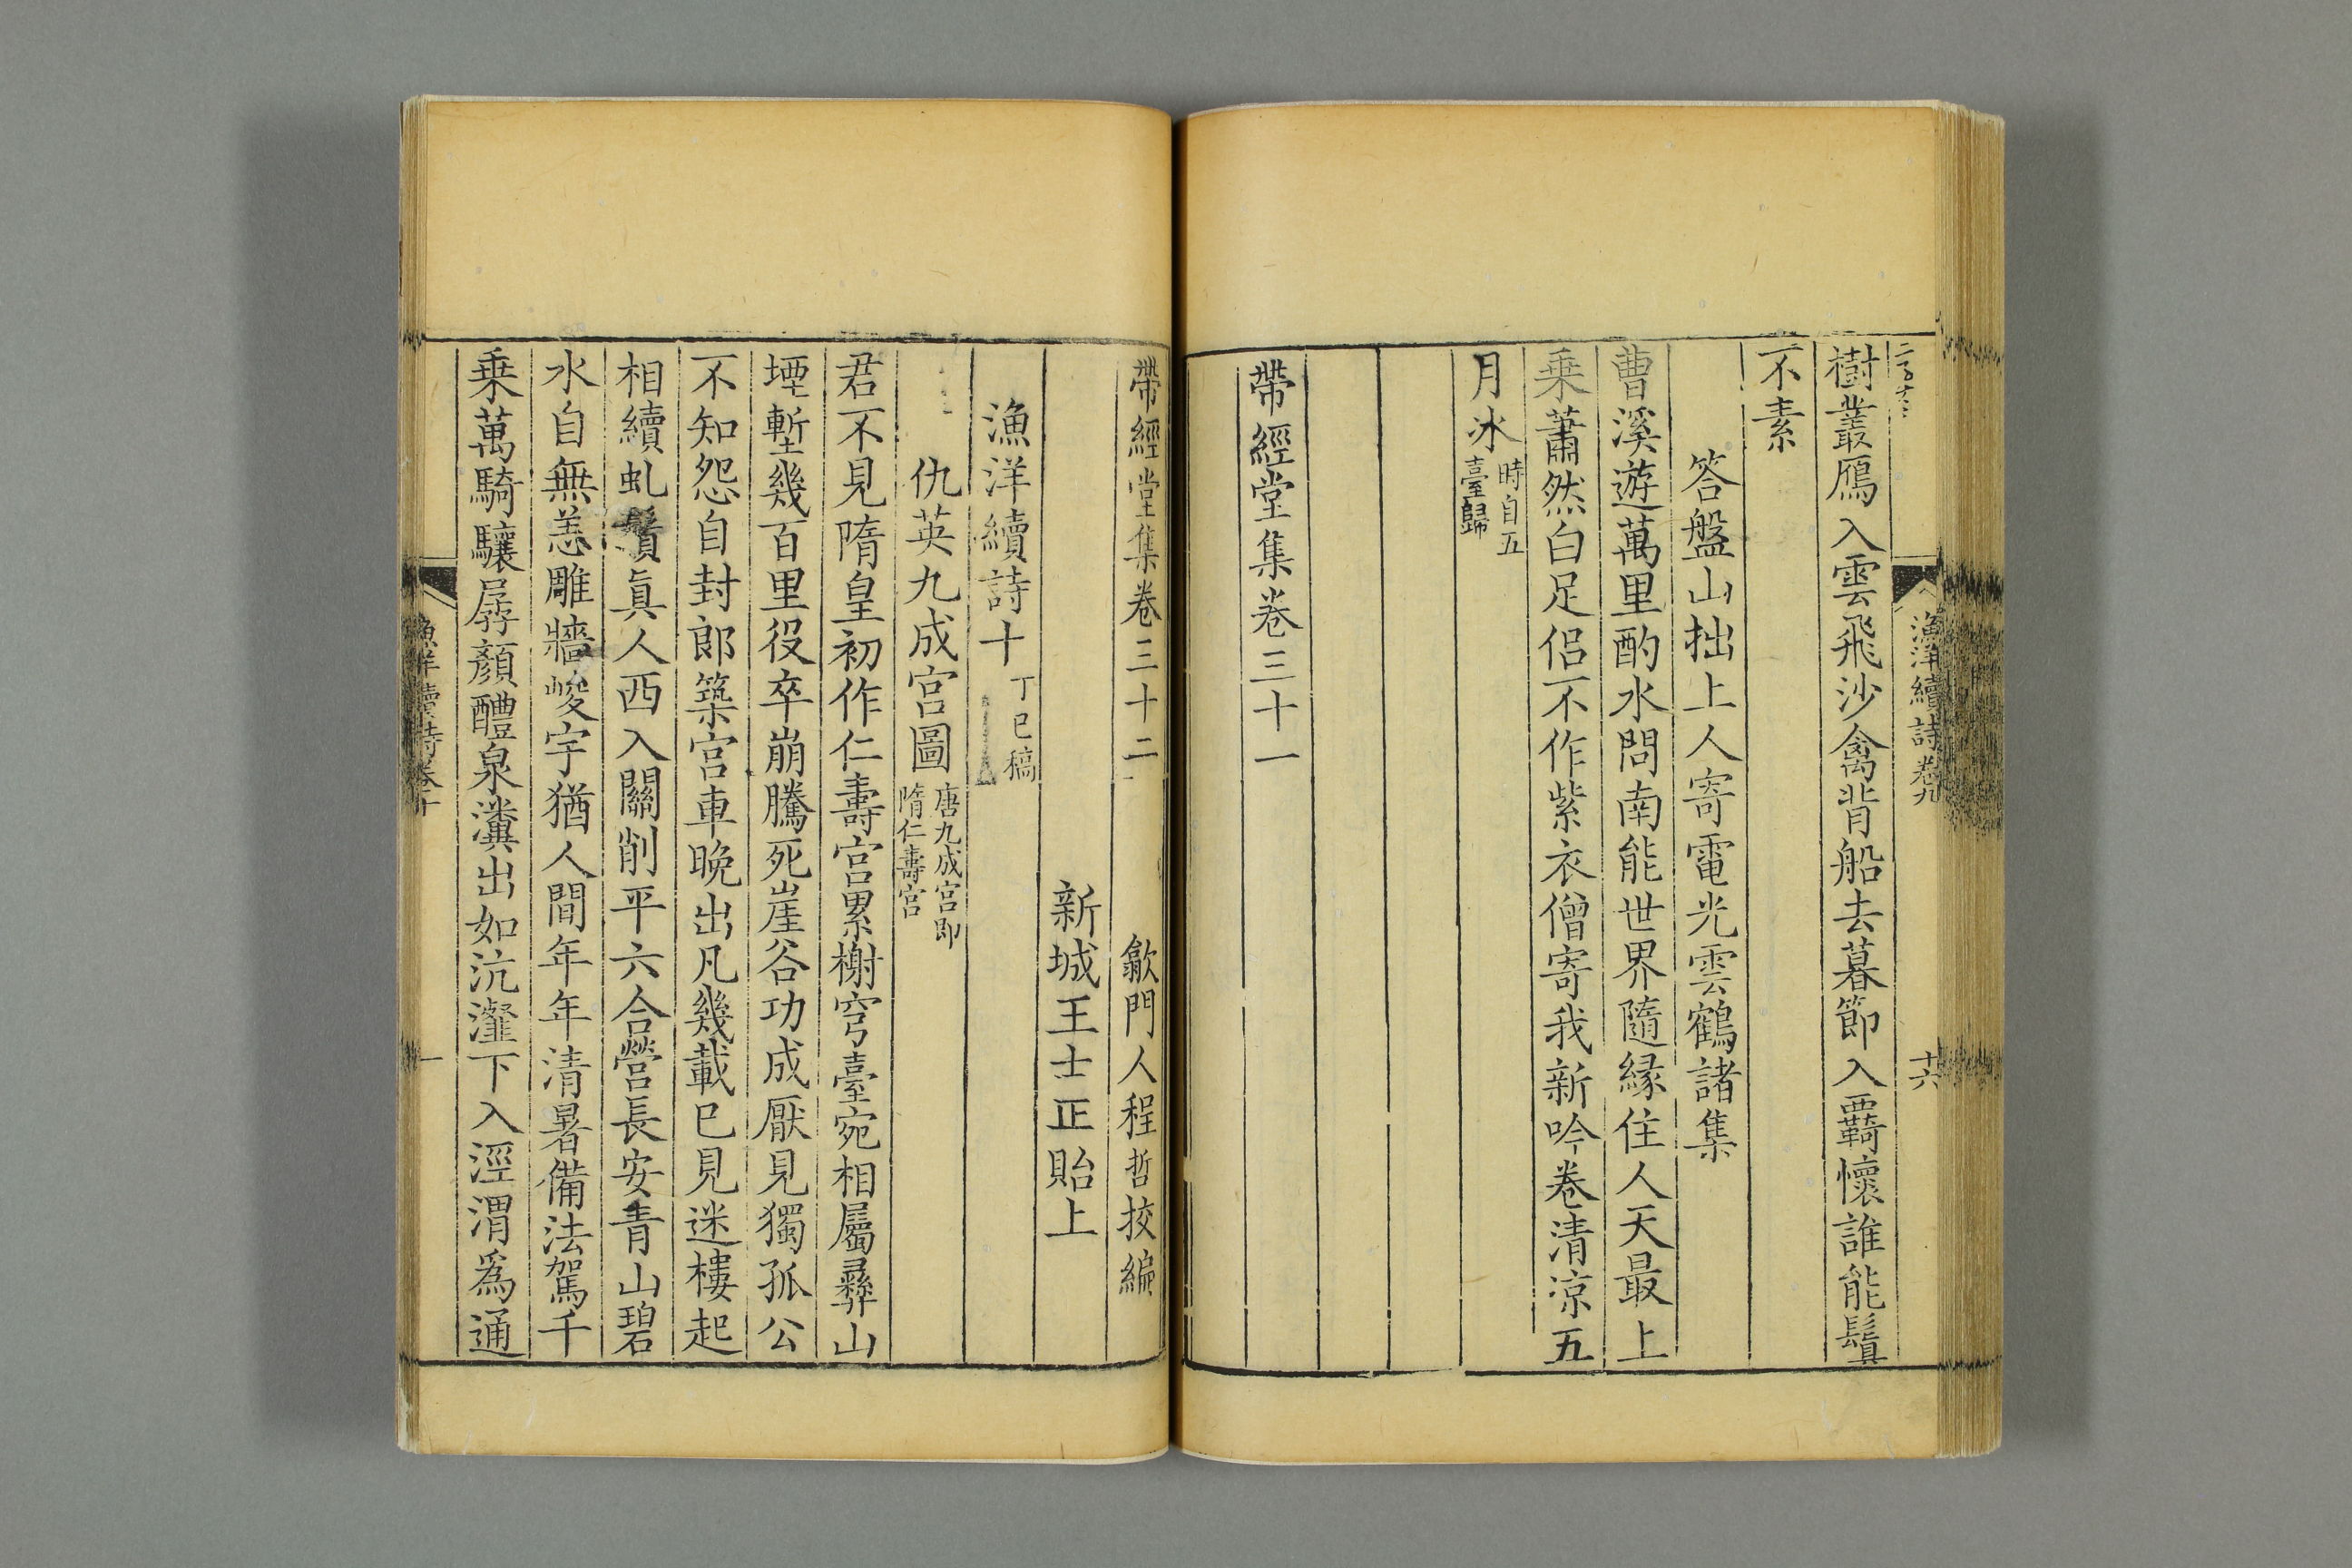 樹叢鴈入雲飛沙禽背船去暮節入覉懷誰能鬒
不素
答盤山拙上人寄電光雲鶴諸集
曹溪遊萬里酌水問南能世界隨緣住人天最上
乗蕭然白足侣不作紫衣僧寄我新吟卷清涼五
月冰時自五
臺歸
帶經堂集卷三十一
漁洋續詩卷九
十六
帶經堂集卷三十二
歙門人程哲挍編
新城王士正貽上
漁洋續詩十丁巳稿
仇英九成宫圖唐九成宫即
隋仁壽宫
君不見隋皇初作仁壽宫累榭穹臺宛相屬彞山
堙塹幾百里役卒崩騰死崖谷功成厭見獨孤公
不知怨自封郎築宫車晚出凡幾載已見迷樓起
相續虬鬚眞人西入關削平六合營長安青山碧
水自無恙雕牆峻宇猶人間年年清暑備法駕千
乗萬騎驤孱顏醴泉瀵出如沆瀣下入涇渭爲通
漁洋續詩卷十
一